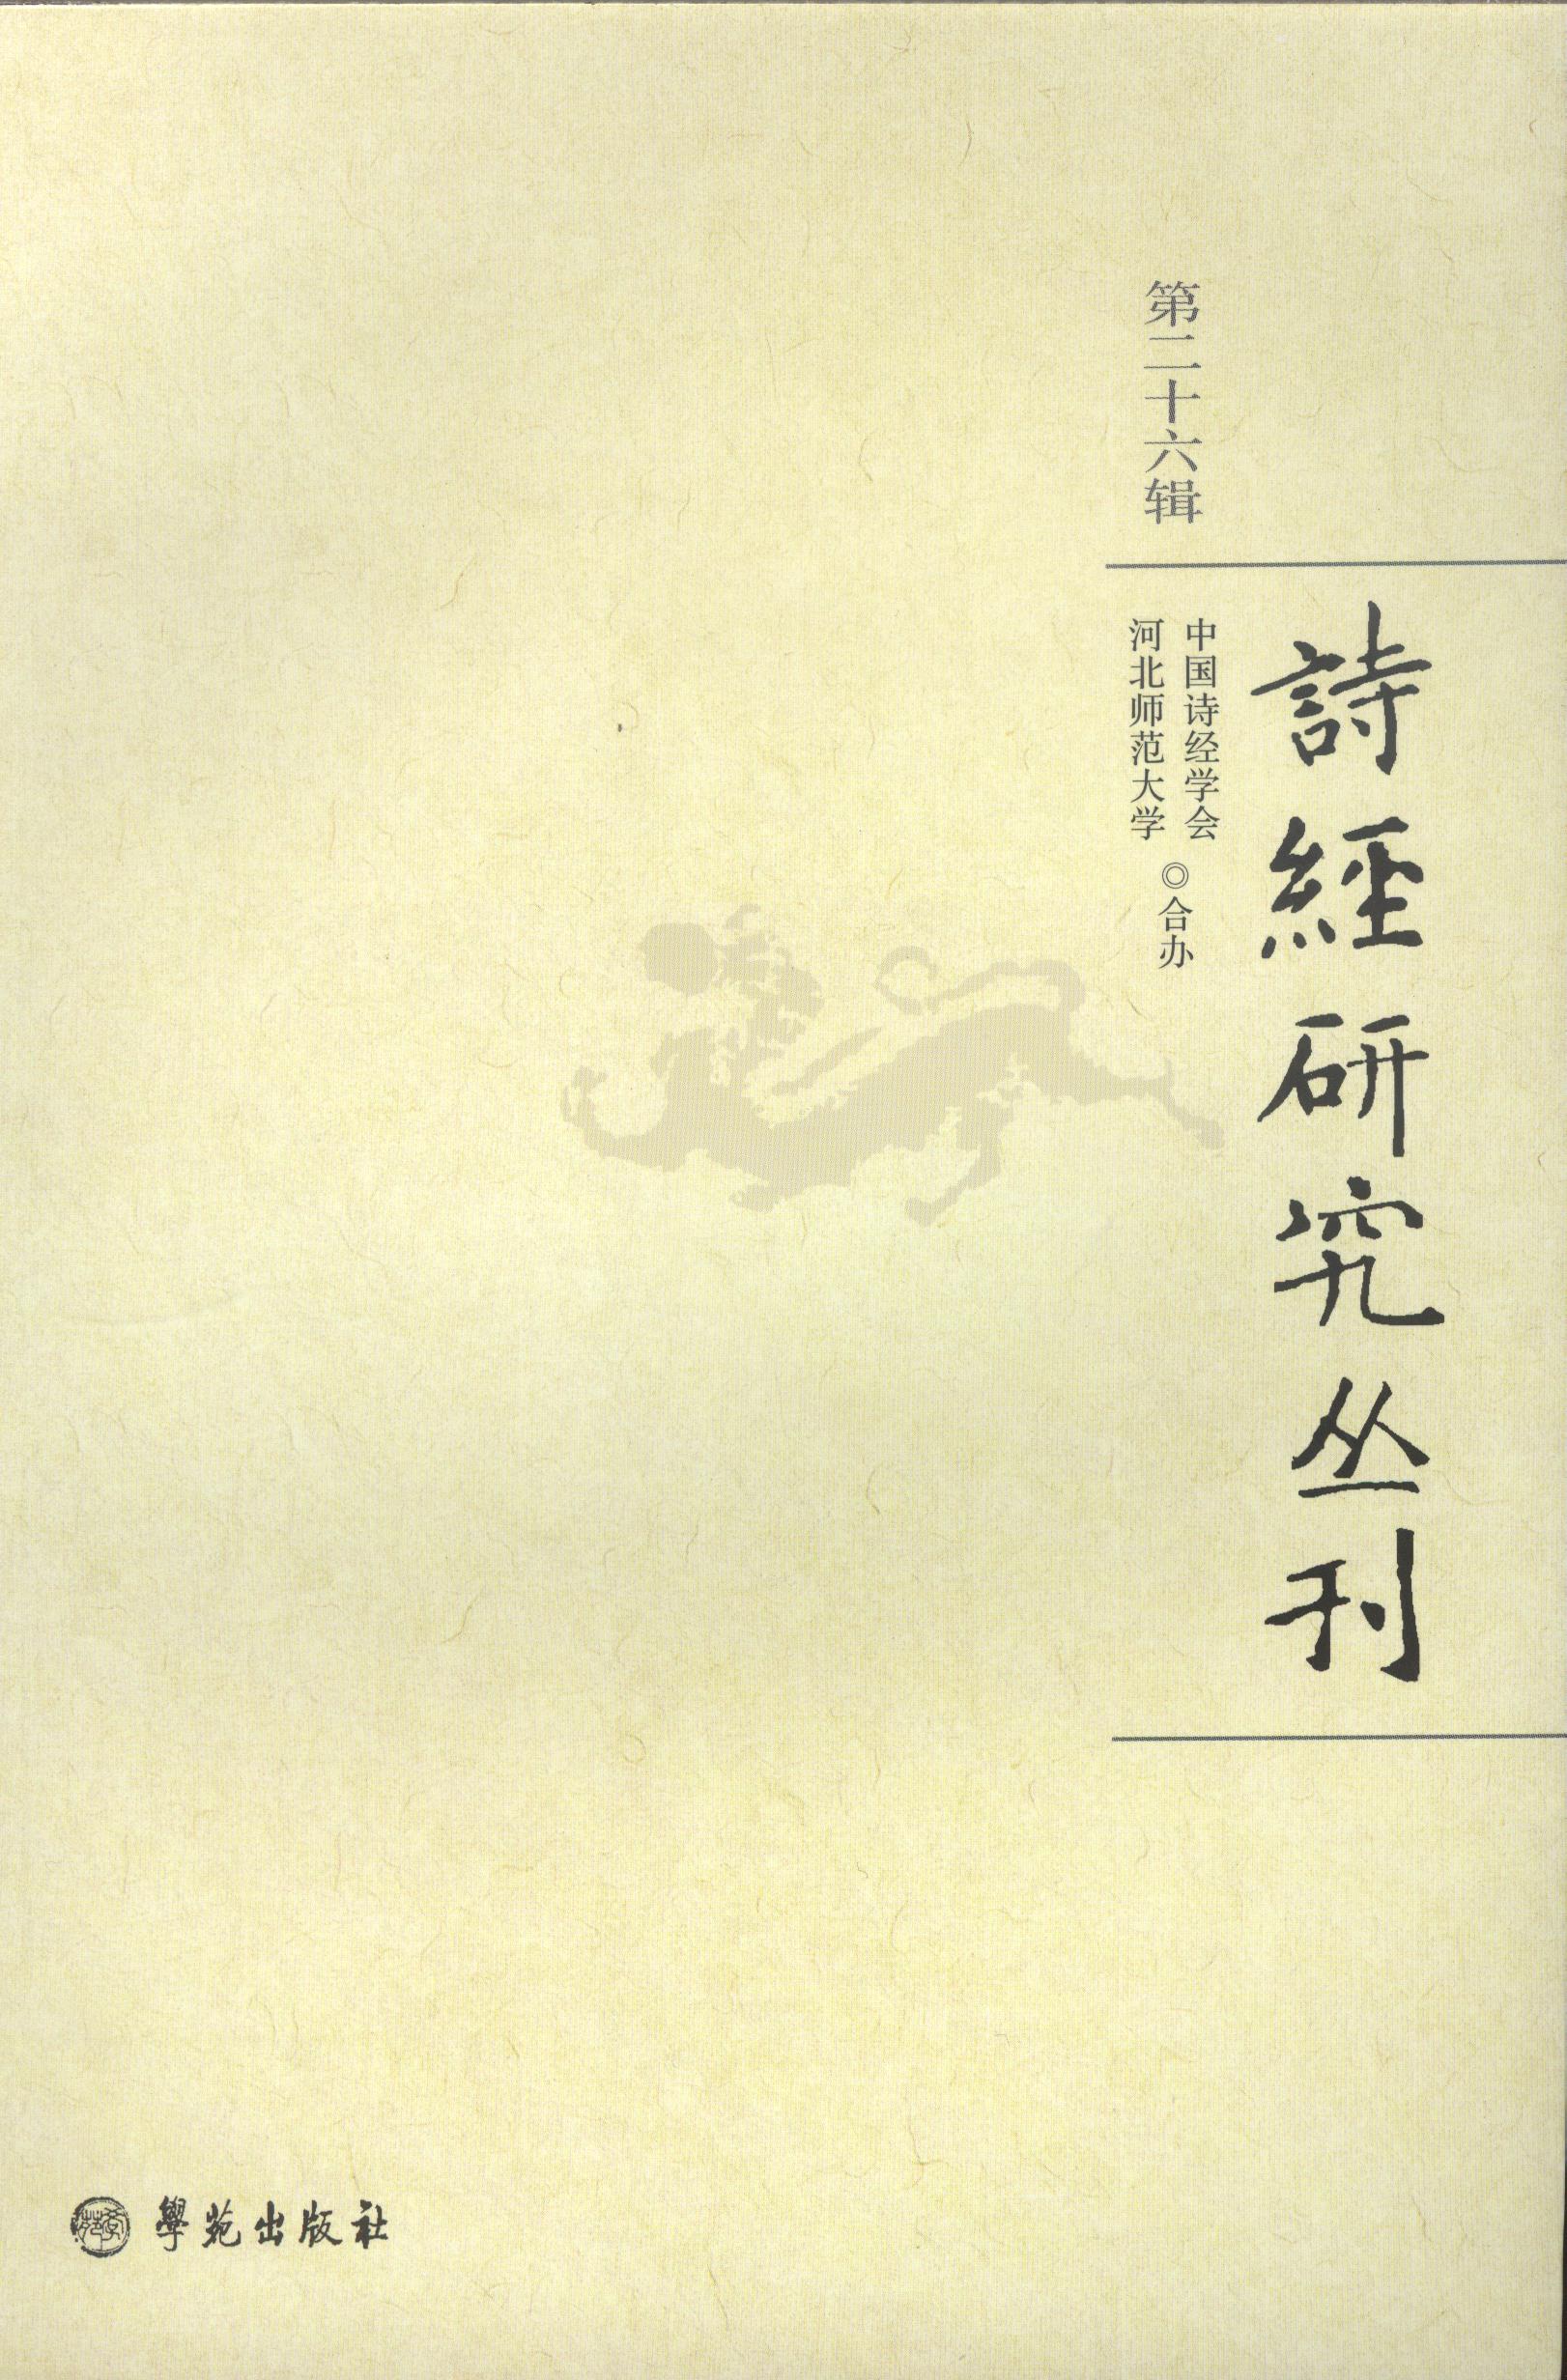 第二十六辑
詩經研究丛刊
中国诗经学会
河北师范大学
◎合办
學苑出版社